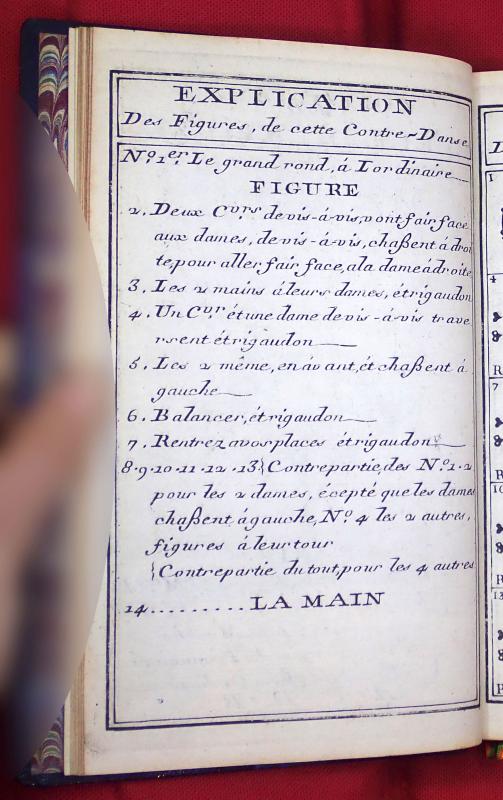 EXPLICATION
Des Figures, de cette Contre-Danse
No. 1er. Le grand rond, á Lordinaire
FIGURE
2. Deux Curs de vis-á-vis, vont fair face
aux dames, de vis-á-vis, chaßent á droi
te, pour aller fair face, a la dame á droite
3. Les 2 mains á leurs dames, ét rigaudon
4. Un Cur ét une dame de vis-á-vis trave
rsent ét rigaudon
5. Les 2 même, en áv ant, ét chaßent á
gauche
6. Balancer, ét rigaudon
7. Rentrez a vos places ét rigaudon
8.9.10.11.12.13 }Contrepartie, des No. 1.2
pour les 2 dames, écepté que les dames
chaßent á gauche, No. 4 les 2 autres,
figures á leur tour
}Contrepartie du tout, pour les 4 autres
14.......... LA MAIN
1
4
R
7
R
10
R
13